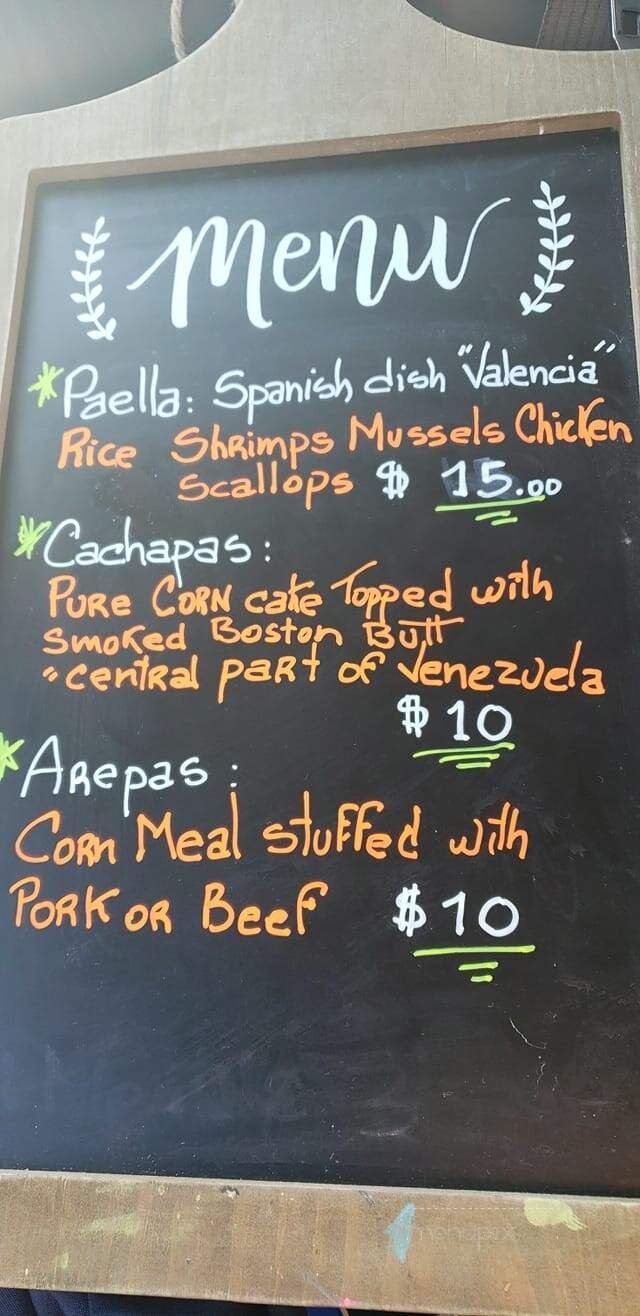 menu
*Paella: Spanish dish "Valencia"
Rice Shrimps Mussels Chicken
Scallops $ 15.00
*Cachapas:
Pure Corn cake Topped with
smoked Boston Butt
"central part of Venezuela
$ 10
*Arepas:
Corn Meal stuffed with
Pork or Beef $ 10
menupix